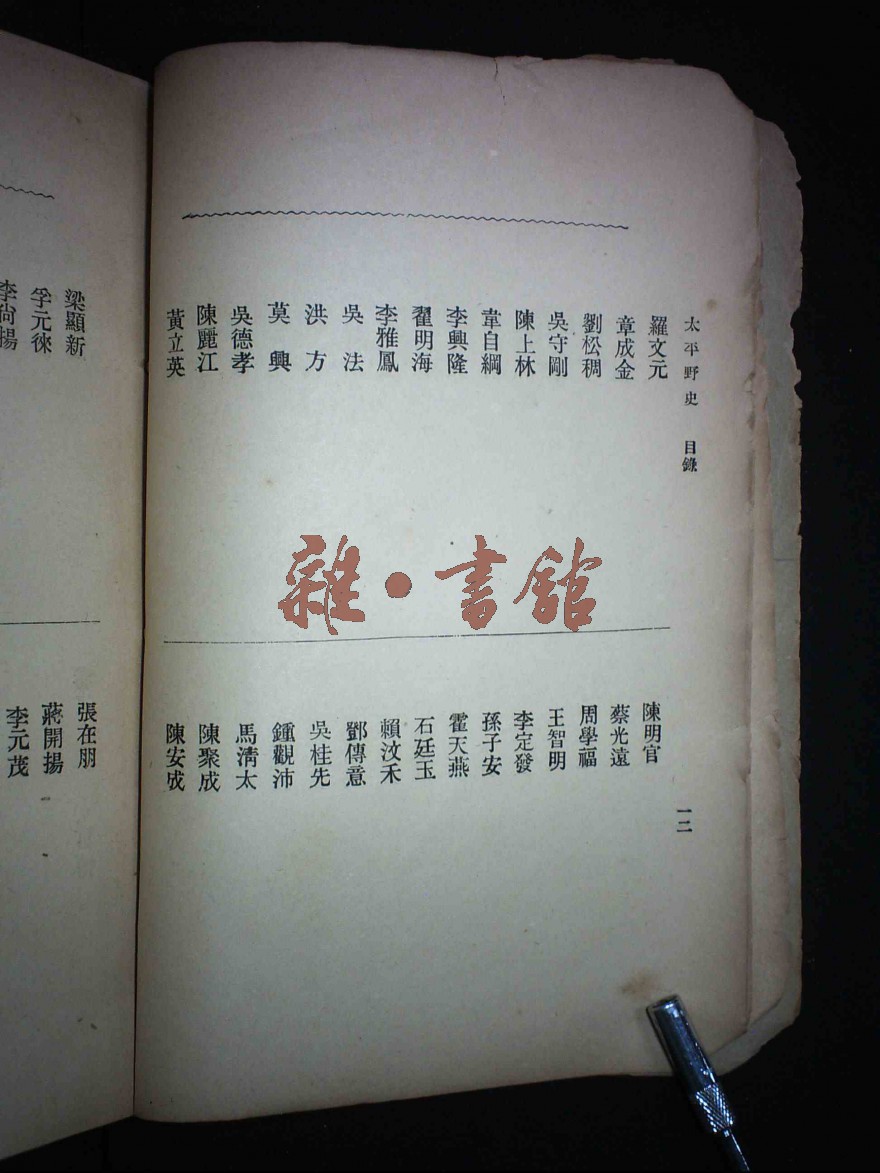 太平野史 目錄
一二
羅文元
章成金
劉松稠
吳守剛
陳上林
韋自綱
李興隆
翟明海
李雅鳳
吳法
洪方
莫興
吳德孝
陳麗江
黃立英
陳明官
蔡光遠
周學福
王智明
李定發
孫子安
霍天燕
石廷玉
賴汶禾
鄧傳意
吳桂先
鍾觀沛
馬淸太
陳聚成
陳安成
梁顯新
李尙揚
張在朋
蔣開揚
李元茂
雜·書館